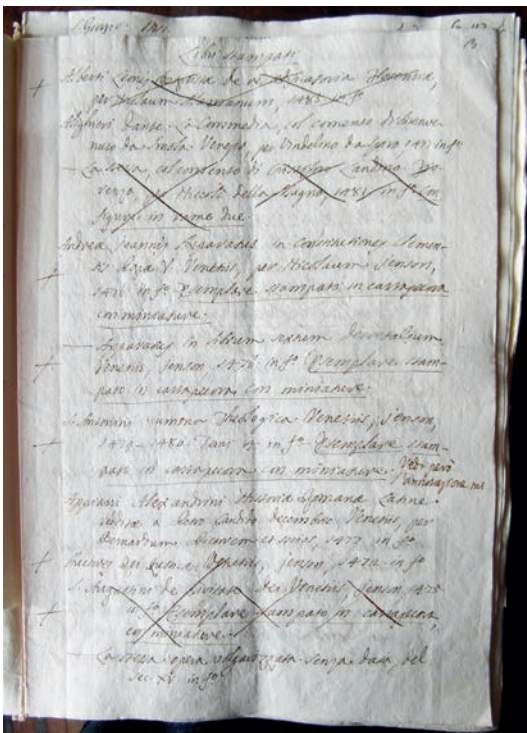 Libri stampati
Alberti Leonis de re edificatoria Florentiæ,
per Nicolaum Alemanum, 1485 in fº
Alighieri Dante. La Commedia, col comento di Benve-
nuto da Imola. Venezia, per Vindelino da Spira, 1477 in fº
La stessa, col comento di Cristoforo Landino. Fio-
renza, per Nicolò della Magna, 1481 in fº con
figure in rame due
Andreæ Joannis Apparatus in Constitutiones Clemen-
tis Papæ V. Venetiis, per Nicolaum Jenson,
in fº Esemplare stampato in cartapecora
con miniature.
Apparatus in librum sextum Decretalium
Venetiis, Jenson, 1476 in fº Esemplare stam-
pato in cartapecora con miniature.
S. Antonini Summa Theologica. Venetiis, Jenson,
1479-1480. Tomi in fº Esemplare stam-
pato in cartapecora con miniature. Vedi però
l'annotazione
Appiani Alexandrini Historia Romana Latine
reddita a Petro Candido Decembrio. Venetiis, per
Bernardum et socios, 1477 in fº
Venetiis, Jenson, 1470 in fº
S. Augustini de Civitate Dei Venetiis, Jenson, 1475
in fº Esemplare stampato in cartapecora,
con miniature.
La stessa opera volgarizzata senza data, del
sec. XV in fº